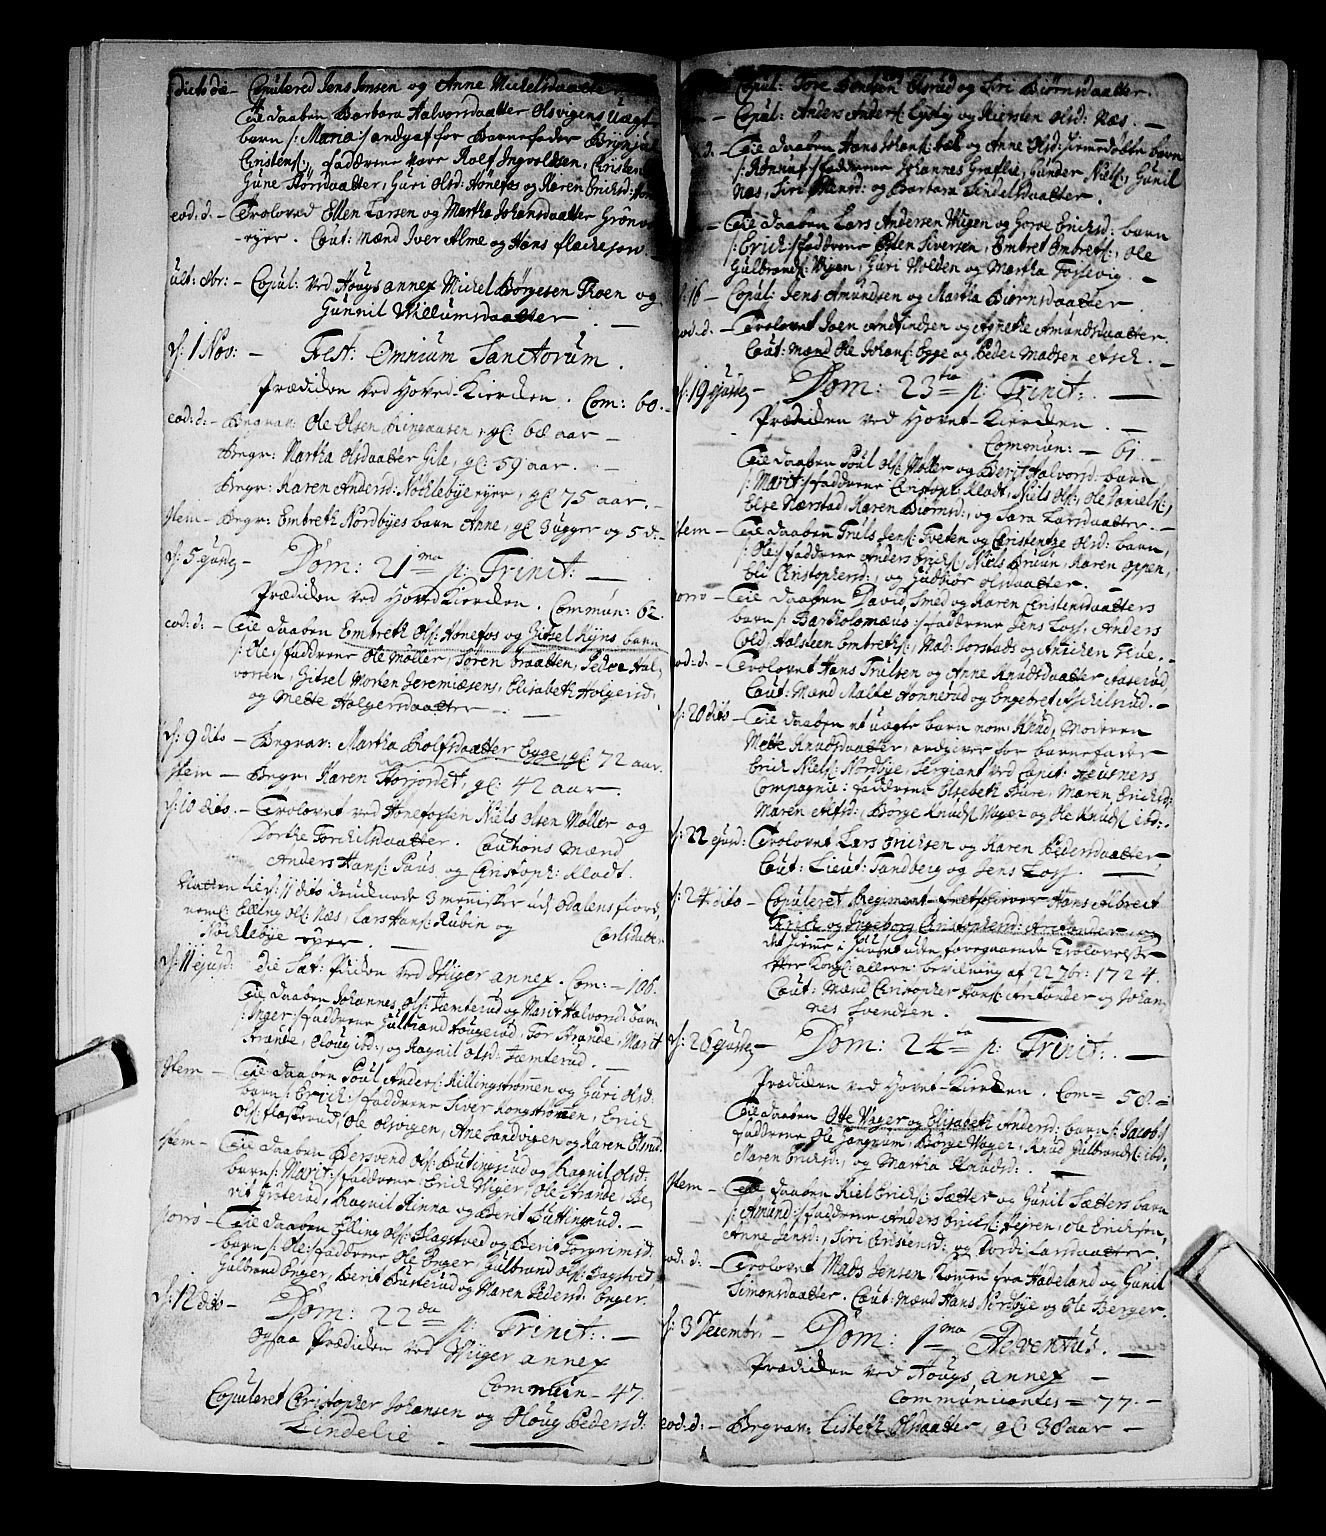 dicto die - Copulered Jens Jensen og Anne Michelsdaatter
Ejie daaben Barbara Halvorsdaatter Olsvigens Uægte
barn /: Maria :/ andgaf for Barnefader Brynjul
Cristens:, faddrene vare Rolf Ingvoldsen, Cristen
Gune Thorsdaatter, Guri Olsd: Hønefos og Karen Erichsd:
eod: d: - Troloved Ellen Larsen og Martha Johansdaatter Grønv
eyer. Caut: Mænd Iver Alme og Hans
ult: Obr: - Copul: ved Hougs annex Michel Børgesen Moen og
Gunnil Willumsdaatter. -
d: 1 Nov: - Fest: Omnium Sanctorum.
Prædiken ved Hoved-Kiercken. Com: 60. -
eod: d: - Begrav: Ole Olsen Ringaasen, gl: 62 aar -
Begr: Martha Olsdaatter Gile, gl: 59 aar. -
Begr: Karen Andersd: Nochlebye eyer, gl: 75 aar. -
Item - Begr: Embreth Nordbyes barn Anne, gl: 3 uger og 5 d: -
d: 5 ejusd: - Dom: 21ma p: Trinit: -
Prædiken ved Hoved Kiercken. Commun: 62. -
eod: d: - Ejie daaben Embreth Ols: Hønefos og Gitsel Nyns barn
/: Ole :/ faddrene Ole Møller, Søren Braatten, Peder Hal-
vorsen, Gitsel Morten Jeremiæsens, Elisabeth Hvigerud,
og Mette Holgersdaatter -
d: 9 dito - Begrav: Martha Rolfsdaatter Egge, gl: 72 aar.
Item - Begr: Karen Horjordet, gl: 42 aar.
d: 10 dito. - Trolovet ved Hønefossen Niels Olsen Møller og
Dorthe Torchilsdaatter. Cautions Mænd
Anders Hans: Paus, og Christoph: Kladt.
Natten til d: 11 dito druknede 3 menisker ud Odalens fiord,
neml: Elling Ols: Næs, Lars Hans: Rubin og Carlsdatter
Nochlebye eyer. -
d: 11 ejusd: die Sat: Prædiken ved Wiger annex. Com: - 106.
Ejie daaben Johannes Ols: Tæmterud og Marit Halvorsd: barn
/: Inger :/ faddrene Gulbrand Hougerud, Tor Strande, Marit
Strande, Houg ibd:, og Ragnil Olsd: Tæmterud. -
Item - Ejie daaben Poul Anders: Killingstrømmen og Guri Olsd:
barn /: Erich :/ faddrene Siver Kongstrømen, Erich
Ols: Flaskerud, Ole Olsvigen, Ane Sandvigen og Karen Olsrud.
Item - Ejie daaben Bersvend Ols: Butingsrud og Ragnil Olsd:
barn /: Marit :/ faddrene Erich Wiger, Ole Strande, Be-
rit Gusterud, Ragnil Rinna og Berit Buttingsrud. -
porro - Ejie daaben Elling Ols: Hagstved og Berit Torgrimsd:
barn /: Ole :/ faddrene Ole Enger, Gulbrand Ols: Dagstved
Gulbrand Enger, Berit Busterud og Maren Pedersd: Enger.
d: 12 dito - Dom: 22da p: Trinit: -
ogsaa Prædiken ved Wiger annex
Commun - 47.
Copuleret Christopher Johansen og Houg Pedersd:
Lindelie -
Copul: Tore Bentsen Olsrud og Siri Biørnsdaatter.
Copul: Anders Anders: Lysty og Kiersten Olsd: Næs. -
d: - Ejie daaben Hans Johans: bæk og Anne Olsd: barn
/: Rønnu :/ faddrene Johannes Graffer, Gunder Niels:, Gunil
Næs, Siri Olensd: og Barbara Sindelsdaatter.
- Ejie daaben Lars Andersen Wigen og Gore Erichsd: barn
/: Erich :/ faddrene Ellen Siversen, Embret Embrets:, Ole
Gulbrands: Wigen, Guri Molden og Martha Fossevig. -
d: 16 - Copul: Jens Amundsen og Martha Biørnsdaatter
eod: d. - Trolovet Joen Andfindsen og Agnethe Amundsdaatter
Caut: Mænd Ole Johans: Egge og Peder Madsen
d: 19 ejusd: - Dom: 23tia p: Trinit: -
Prædiken ved Hovet-Kiercken. -
Commun: - 61. -
Ejie daaben Poul Ols: Møller og Berit Halvorsd: barn
/: Marit :/ faddrene Cristoph: Kladt, Niels Ols:, Ole Daniels:,
Else Nærstad, Karen Biørnsd:, og Sara Larsdaatter. -
Item - Ejie daaben Truls Jens: Tveten og Christentze Olsd: barn,
/: Ole :/ faddrene Anders Erichs:, Niels Bruun, Karen Oppen,
Eli Christophersd:, og Gudbiør Olsdaatter. -
porro - Ejie daaben David Smed og Karen Cristensdaatters
barn /: Bartholomæus :/ faddrene Jens Loss, Anders
Vold, Halsteen Embreths:, Mad: Sorstads og Anichen Hue. -
eod: d: - Trolovet Hans Trulsen og Anne Knudsdaatter Aaserud,
Caut: Mænd Malte Hønnerud og Engebret Aschilsrud. -
d: 20 dito - Ejie daaben et uægte barn nom: Knud, Moderen
Mette Knudsdaatter, andgiver for barnefader
Erich Niels: Nordbye, Sergiant ved Capit: Heusners
Compagnie: faddrene Elsebeth Fure, Maren Erichsd:
Maren Alfsd:, Børge Knuds: Wager og Ole Knuds: ibd: -
d: 22 ejusd: Trolovet Lars Erichsen og Karen Pedersdaatter -
Caut: Lieut: Tandberg og Jens Loss. -
d: 24 dito - Copuleret Regiment-Feltskierer Hans Albrect
Frich og Ingeborg Christophersd: Arctander - og
det hiemme i Huuset uden foregaaende Trolovelse
efter Kongl: allern: bevilning af 22 7br: 1724.
Caut: Mænd Christopher Hans: Arctander og Johan-
nes Svendsen.
d: 26 ejusd: - Dom: 24ta p: Trinit: -
Prædiken ved Hovet-Kiercken. Com = 58 =
Ejie daaben Otte Wager og Elisabeth Andersd: barn /: Jacob :/
faddrene Ole Jongrum, Børge Wager, Knud Gulbrands: ibd:,
Maren Erichsd:, og Martha Knudsd: -
Item - Ejie daaben Kiel Erichs: Sætter og Gunil Sætters barn
/: Amund :/ faddrene Anders Erichs: Hejren, Ole Erichsen,
Anne Jensd:, Siri Cristensd: og Dordi Larsdaatter.
eod: d: - Trolovet Mads Jensen Kommen fra Hadeland og Gunil
Simonsdaatter. Caut: Mænd Hans Nordbye og Ole Berger.
d: 3 Decembr: - Dom: 1ma Adventus. -
Prædiken ved Hougs annex -
Communicantes = 77. -
eod: d: - Begrav: Lisbeth Olsdaatter, gl: 38 aar -